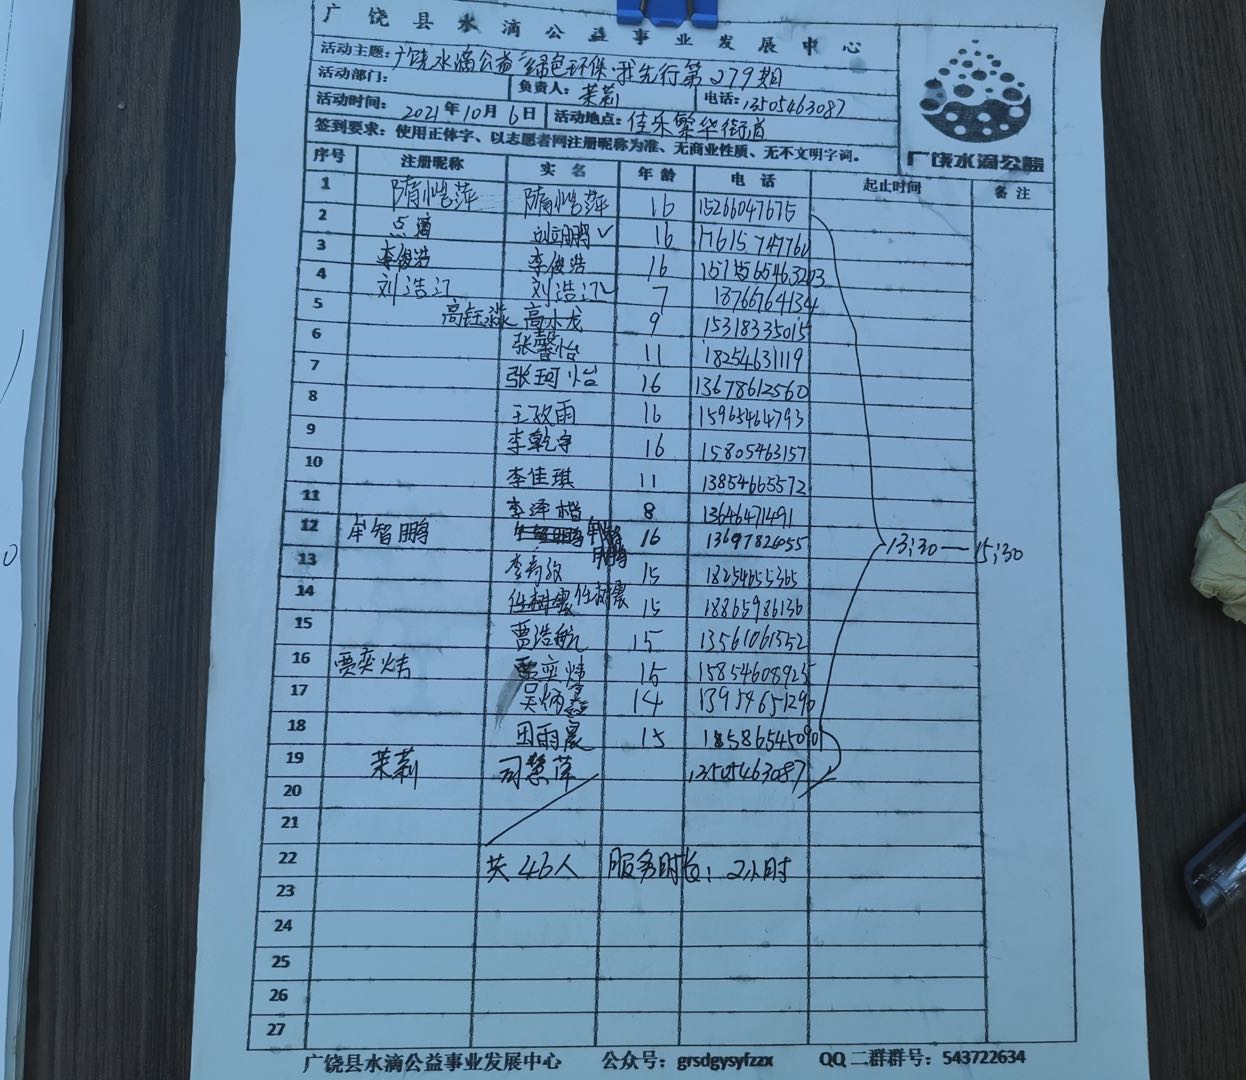 广饶县水滴公益事业发展中心
活动主题: 广饶水滴公益"绿色环保·我先行第279期
活动部门: 负责人: 茉莉 电话: 13505463087
活动时间: 2021年10月6日 活动地点: 佳乐繁华街道
签到要求：使用正体字、以志愿者网注册昵称为准、无商业性质、无不文明字词。
广饶水滴公益
序号 注册昵称 实名 年龄 电话 起止时间 备注
1 隋恺萍 隋恺萍 16 15266047675
2 点滴 刘翊鹏 16 17615747760
3 李俊浩 李俊浩 16
4 刘浩江 刘浩江 7 18766764134
5 高钰淼 高小龙 9 15318335015
6 张馨怡 11 18254631119
7 张珂怡 16 13678612560
8 王孜雨 16 15965464793
9 李乾宇 16 15805463157
10 李佳琪 11 13854665572
11 李泽楷 8 13646471491
12 牟智鹏 牟智鹏 16 1369782055 13:30—15:30
13 15 18254655365
14 任树震 任树震 15 18865986136
15 贾浩航 15 13561061552
16 贾奕炜 贾奕炜 15 15854608925
17 吴炳鑫 14 13954651290
18 田雨晨 15 18586545090
19 茉莉 司慧萍 13505463087
20
21
22 共46人 服务时长：2小时
23
24
25
26
27
广饶县水滴公益事业发展中心 公众号：grsdgysyfzzx QQ二群群号：543722634